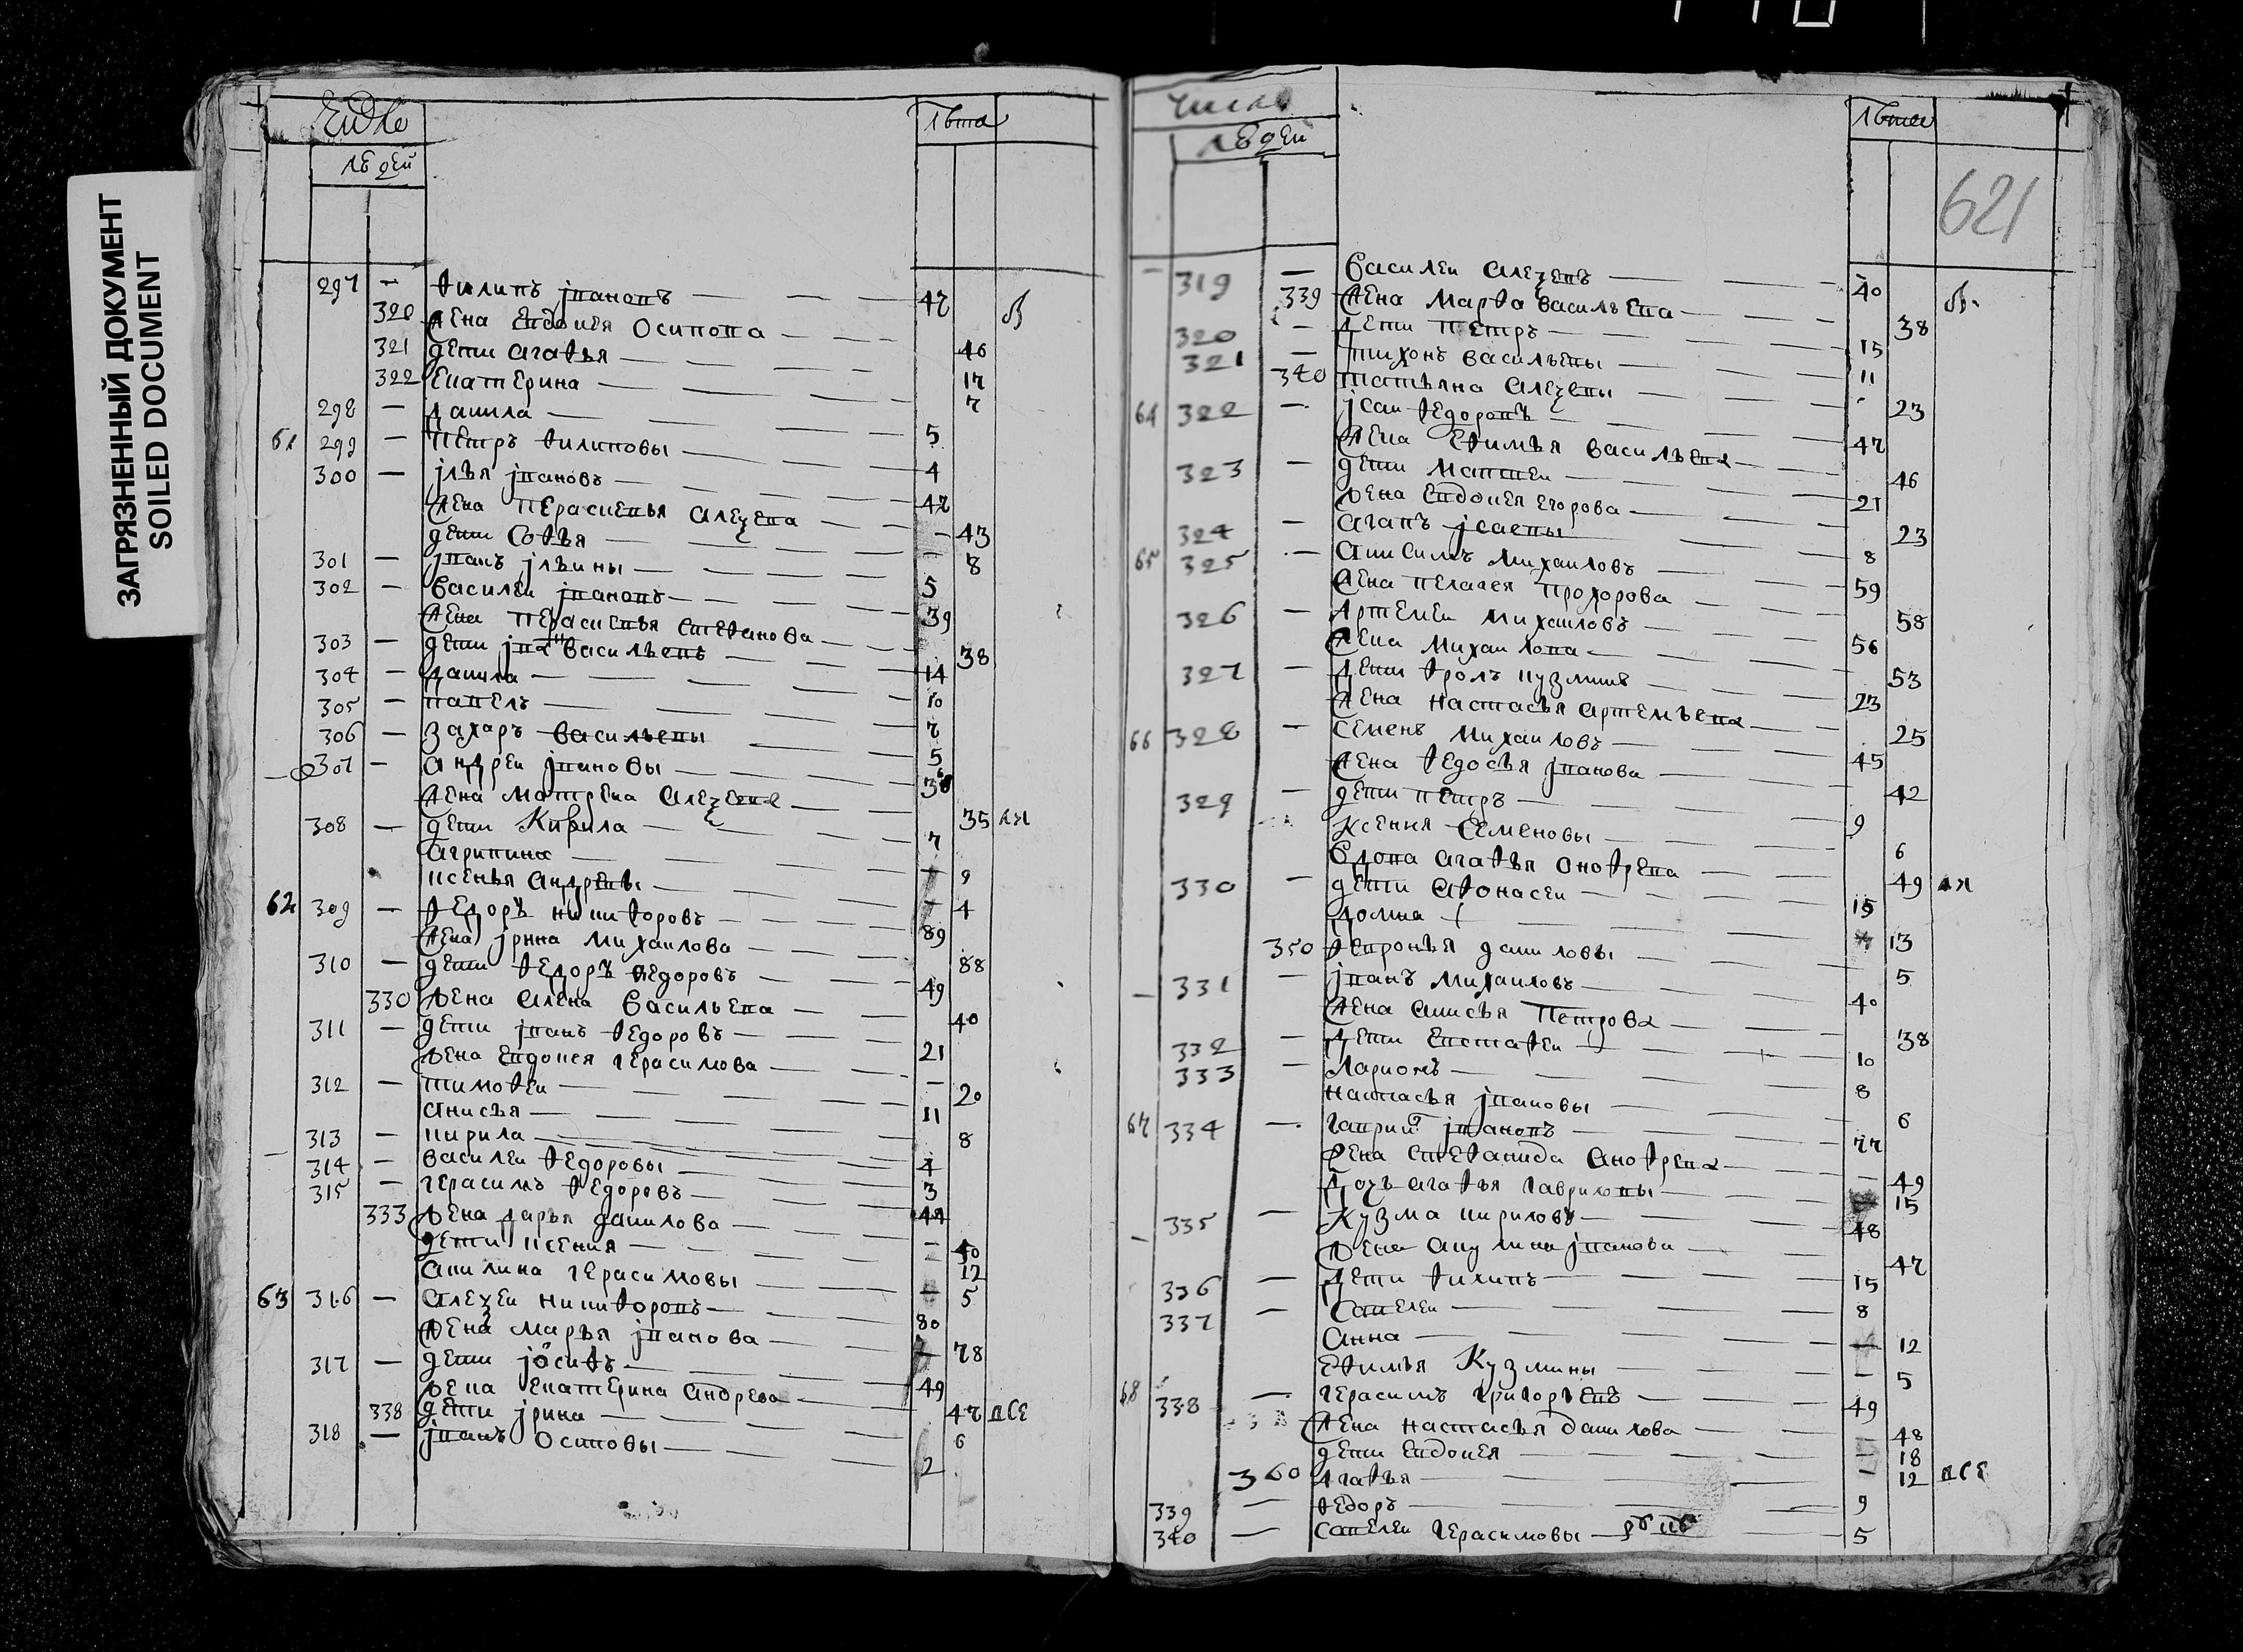 ЗАГРЯЗНЕННЫЙ ДОКУМЕНТ
SOILED DOCUMENT
людей
лѣта
297 — филипъ іванопъ — 47
320 жена Епдокея Осипопа — 46
321 дети агафья — 17
322 Екатерина — 7
298 — данила — 5
61 299 — петръ филиповы — 4
300 — ілья івановъ — 47
жена Перасковья алеѯева — 43
дети софья — 8
301 — іванъ ільины — 5
302 — василеи іванопъ — 39
жена стефанова — 38
303 — дети іванъ васильевъ — 14
304 — данила — 10
305 — павелъ — 7
306 — захаръ васильевы — 5
307 — андреи івановы — 36
жена матрена алеѯева — 35
308 — дети Кирила — 7
агрипина — 9
ксенья андреевы — 4
62 309 — федоръ никифоровъ — 89
жена ірина михаилова — 88
310 — дети федоръ федоровъ — 49
330 жена алена васильева — 40
311 — дети іванъ федоровъ — 21
жена евдокея герасимова — 20
312 — тимофеи — 11
анисья — 8
313 — кирила — 4
314 — василеи федоровы — 3
315 — герасимъ федоровъ — 47
333 жена дарья данилова — 40
дети ксения — 12
акилина герасимовы — 5
63 316 — алеѯеи никифоровъ — 80
жена марья іванова — 78
317 — дети іосифъ — 49
жена екатерина андрева — 47 все
338 дети ірина — 6
318 — іванъ осиповы — 2
число
людей
лѣта
621
319 — василеи алеѯевъ — 40
339 жена марфа васильева — 38
320 — дети петръ — 15
321 — тихонъ васильевы — 11
340 татьяна алеѯевы — 23
64 322 — ісаи федоровъ — 47
жена Ефимья васильева — 46
323 — дети матвеи — 21
жена евдокея егорова — 23
324 — агапъ ісаевы — 8
65 325 — анисимъ михаиловъ — 59
жена пелагея прохорова — 58
326 — артемеи михаиловъ — 56
жена михаилова — 53
327 — дети фролъ кузминъ — 23
жена настасья артемьева — 25
66 328 — семенъ михаиловъ — 45
жена федосья іванова — 42
329 — дети петръ — 9
ксения семеновы — 6
вдова агафья анофрева — 49
330 — дети афонасеи — 15
домна — 13
350 февронья даниловы — 5
331 — іванъ михаиловъ — 40
жена анисья петрова — 38
332 — дети евстафеи — 10
333 — ларионъ — 8
настасья івановы — 6
67 334 — гаврило івановъ — 77
жена стефанида анофрева — 49
дочь агафья гавриловы — 15
335 — Кузма кириловъ — 48
жена акулина іванова — 47
336 — дети филипъ — 15
337 — савелеи — 8
анна — 12
ефимья Кузмины — 5
68 338 — герасимъ григорьевъ — 49
жена настасья данилова — 48
дети евдокея — 18
360 агафья — 12 все
339 — федоръ — 9
340 — савелеи герасимовы — 5